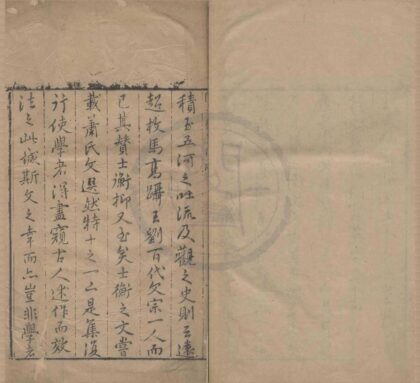 積玉五河之吐流及觀之史則云遠
超枚馬髙躡王劉百代文宗一人而
已其賛士衡抑又至矣士衡之文嘗
載蕭氏文選然特十之一二是集復
行使學者得盡窺古人述作而效
法之此誠斯文之幸而亦豈非學者